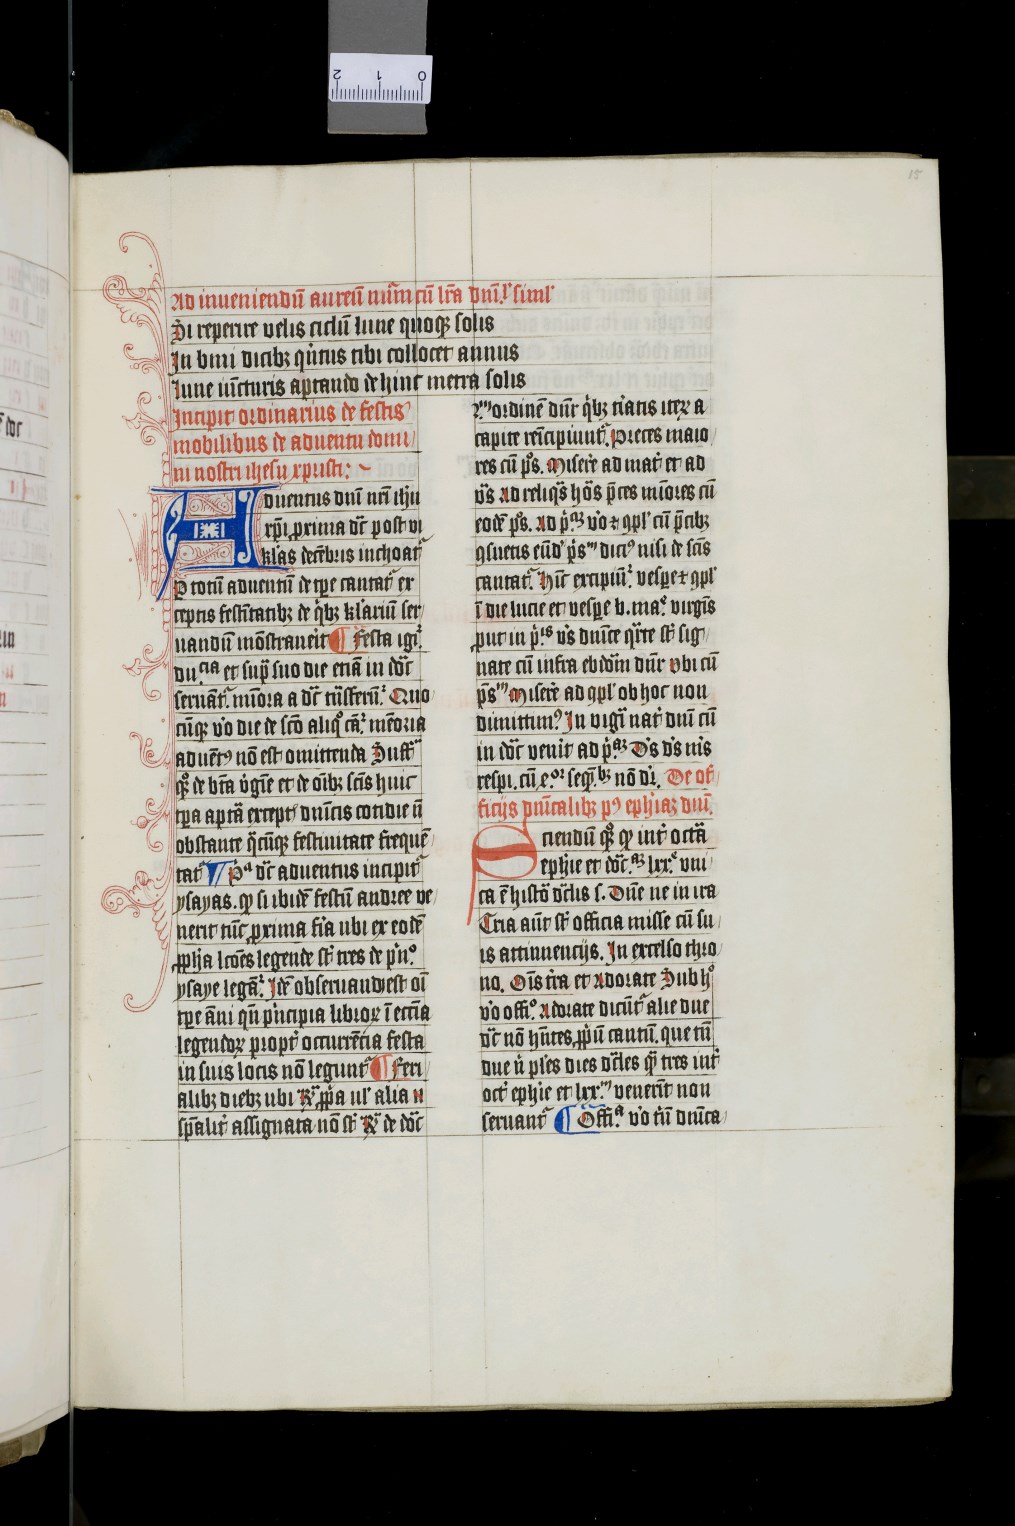 15
Ad inveniendū aureū nūm cū lr̄a dnī.ʳ simlʳ
Si reperire velis ciclū lune quoqꝫ solis
In bini dicibꝫ qͥtus tibi collocet annus
Iune iūcturis aptando dehinc metra solis
Incipit ordinarius de festis
mobilibus de adventu domi/
ni nostri ihesu xpristi:
Adventus dnī nr̄i ihū
xp̄i prima dc̄ post vi
klas decēbris inchoat᷑
Per totū adventū de tp̄e cantat᷑ ex
ceptis festītatibꝫ de qͥbꝫ klāriū ser/
uandū mōstraverit ¶ Festa igͥ
du.cia et sup̄ suo die etiā in dōc̄
seruāt᷑. miōra a dc̄ trāsferūt᷑. Quo
cūqꝫ vͦo die de scō aliqͦ cāt᷑ memoria
adventꝰ nō est omittenda Suffᵃ
qͦꝫ de bt̄a vͥgīe et de oībꝫ scīs huic
tp̄a aptā except̄ dnīcis cotidie nͫ
obstante qͣcūqꝫ festiuitate frequē/
tāt᷑ ¶ Pͥᵃ dc̄ adventus incipit᷑
ysayas. qꝫ si ibidē festū andree ve/
nerit tūc prima fīa ubi ex eodē
ꝓph̄a lcōes legende st̄ tres de pͥnͦ
ysaye legāt᷑. Idē observandū est oī
tp̄e āni qn̄ pͥncipia librorꝫ ī ecc̄ia
legendorꝫ propt̄ occurrētia festa
in suis locis nō legunt᷑ ¶ Feri
alibꝫ diebꝫ ubi R᷑ ꝓp̄a ul̓ alia n̄
sp̄alit̄ assignata nō st̄ R᷑ de dōc̄
ꝑ ordinē dn̄r qͥbꝫ tͥiatis iterꝫ a
capite reīcipiunt᷑. Preces maio/
res cū pͦs. Miserē ad mat̄ et ad
vͦs Ad reliqͣs hōs p̄ces miōres cū
eodē pͦs. Ad pͥꝫ vͦo ⁊ ꝯpl̓ cū p̄cibꝫ
ꝯsuetis eūdē pͦsᵐ dicꝰ nisi de scīs
cantat᷑. Hīc excipiūt᷑ vespe ⁊ ꝯpl̓
ī die lucie et vespe b. maͤ virgīs
put in pͥˡˢ vͦs dnīce qͣrte st̄ sig/
nate cū infra ebdōm dn̄r ubi cū
pͦsᵐ Miserē ad ꝯpl̓ ob hoc non
dimittimꝰ In vigīꝉ nat̄ dnī cū
in dōc̄ venit̄ ad pͥꝫ Dͦs dͦs mͤs
respi. cū ceͦꝫ seqͣbꝫ nō drͥ. De of/
ficiis dnīcalibꝫ pꝰ ephīaꝫ dnī.
Sciendū qꝫ qꝫ int̄ octā
ephie et dōc̄.ᵃᵐ lxxͤ vni/
ca ē histō dc̄lis s. Dn̄e ne in ira
Tria aut̄ st̄ officia misse cū su/
is attinenciis. In excelso thro/
no. Oīs t̄ra et Adorate Sub hͦ
vͦo offͦ. Adorate dicūt᷑ alie due
dc̄ nō hn̄tes ꝓpͥū cantū. que tn̄
due uͥ pl̄es dies dc̄les qꝫ tres int̄
oct̄ ephie et lxxᵐ venerīt non
seruant᷑ ¶ Offᵃ vͦo tn̄ dnīca/